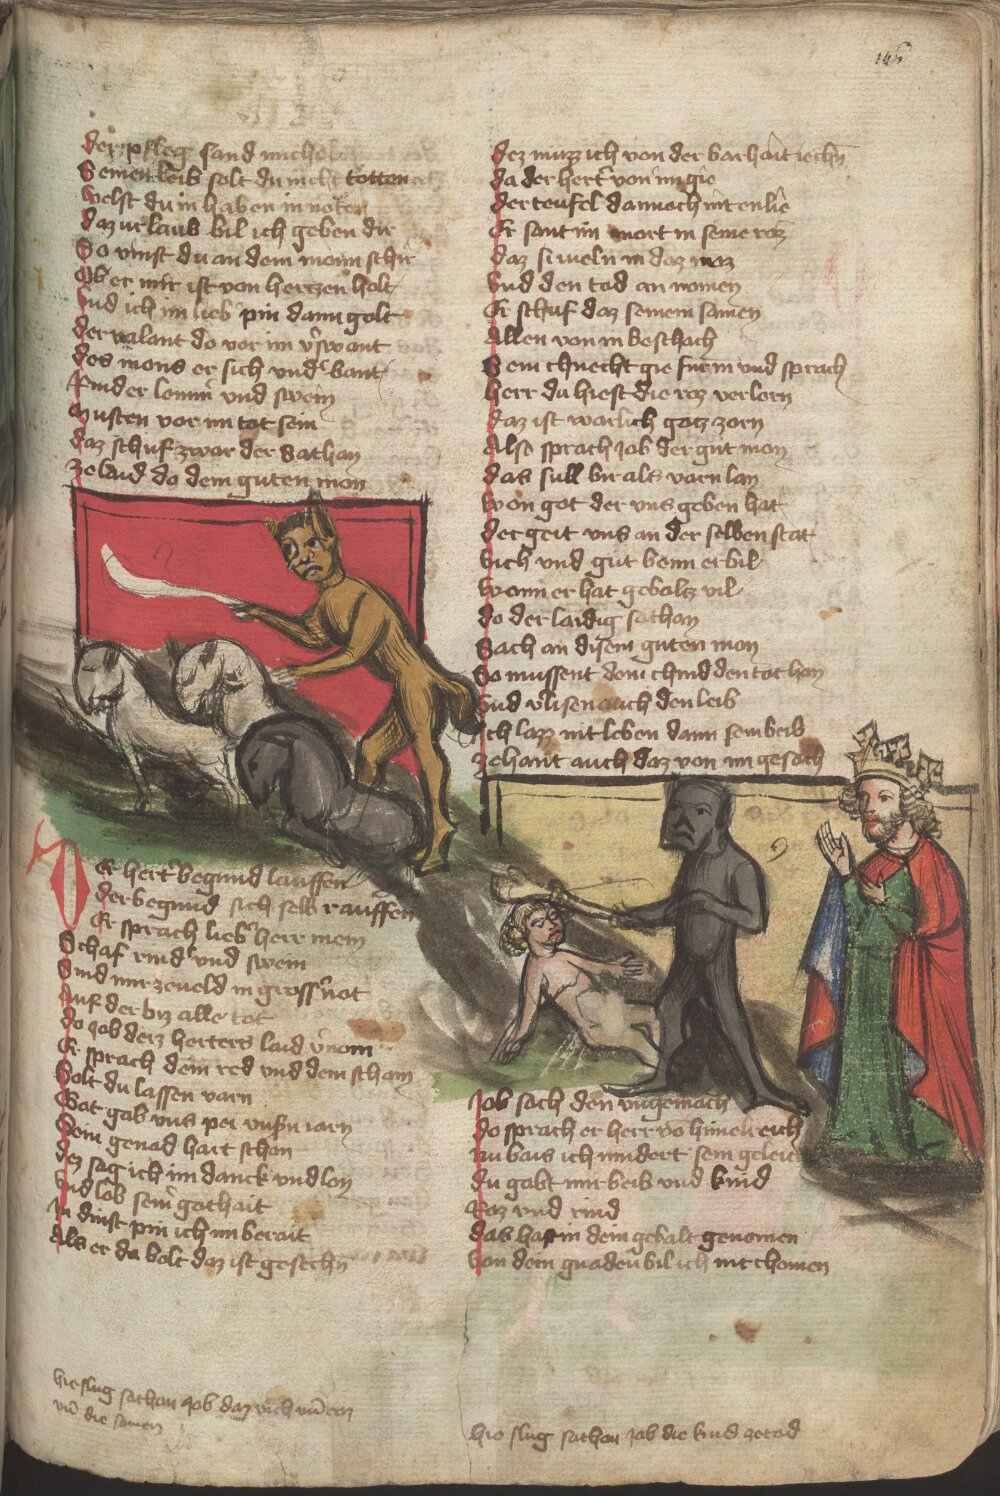 146
der pfleg sand michahel
Seinen leib solt du nicht totten
welst du in haben in noten
daz urlaub bil ich geben dir
So vinst du an dem monn schir
Ob er mir ist von hertzen holt
und ich im lieb pin dann golt
der valant do vor im vswant
des mons er sich undbant
Rinder lemm und swein
musten vor im tot sein
daz schuf zwar der Sathan
ze laid do dem guten mon
Der hert begund lauffen
der begund sich selb rauffen
Er sprach lieb herr mein
Schaf rind und swein
Sind mir zeveld in gross not
Auf der biz alle tot
do Job dez herters laid vnom
Er sprach dein red und dein scham
Solt du lassen varn
Got gab uns pei unsn iarn
Sein genad hart schon
dez sag ich im danck und lon
und lob sein gothait
In dinst pin ich im berait
Als er da bolt daz ist geschehn
hie slug sathan Job daz vich
und die samen
dez muzz ich von der barhait iechn
da der hert von im gie
der teufel dannoch nit enlie
Er sant im mort in seine roz
daz si vieln in daz moz
und den tod an nomen
Er schuf daz seinem samen
Allen von im beschach
Sein chnecht gie fur in und sprach
herr du hiest die roz verlorn
daz ist warlich gotz zorn
Also sprach Job der gut mon
das sull bir als varn lan
won got der uns geben hat
der geit uns an der selben stat
vich und gut benn er bil
wonn er hat gebaltz vil
do der laidig sathan
Sach an disem guten mon
So mussent deine chind den tot hon
und vlisen auch den leib
Ich lazz nit leben dann sein beib
zehant auch daz von im geschch
Job sach den ungemach
do sprach er herr von himelreich
nu bais ich nindert sein geleich
du gabt mir beib und kind
Roz und rind
das hastu in dein gebalt genomen
von dein gnaden bil ich nit chomen
hie slug sathan Job die kind ze tod